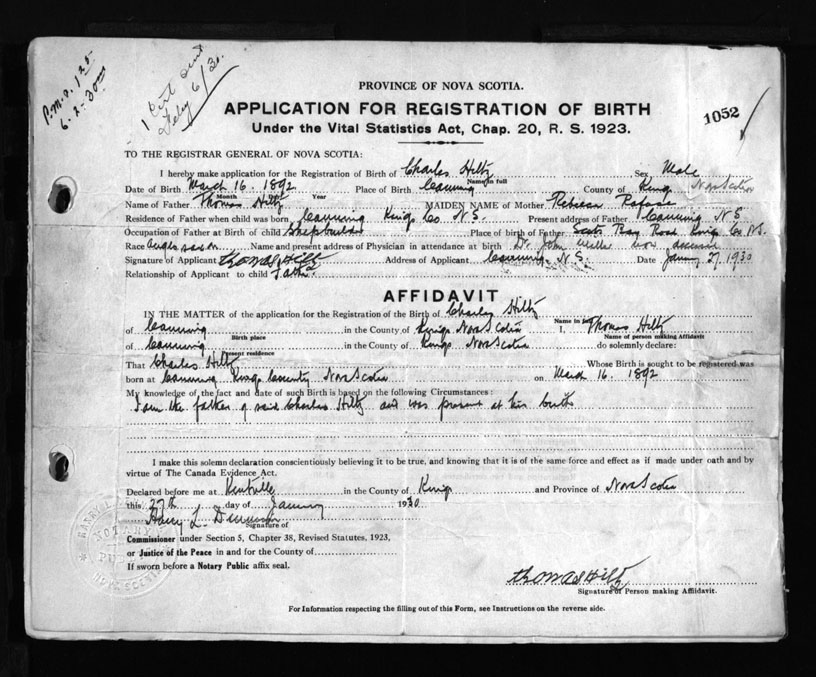 P.M.O. 1 30
6-2-30
1 Cert Sent
Feby 6/30.
PROVINCE OF NOVA SCOTIA.
APPLICATION FOR REGISTRATION OF BIRTH
1052
Under the Vital Statistics Act, Chap. 20, R. S. 1923.
TO THE REGISTRAR GENERAL OF NOVA SCOTIA:
I hereby make application for the Registration of Birth of Charles Hiltz Sex Male
Name in full
Date of Birth March 16. 1892 Place of Birth Canning County of Kings Nova Scotia
Month Day Year
Name of Father Thomas Hiltz MAIDEN NAME of Mother Rebecca
Residence of Father when child was born Canning Kings Co. N.S. Present address of Father Canning N.S
Occupation of Father at Birth of child Shipbuilder Place of birth of Father Scots Bay Road Kings Co N.S.
Race Anglo saxon Name and present address of Physician in attendance at birth Dr. John now
Signature of Applicant Thomas Hiltz Address of Applicant Canning. N.S. Date January 27, 1930
Relationship of Applicant to child Father
AFFIDAVIT
IN THE MATTER of the application for the Registration of the Birth of Charles Hiltz
Name in full
of Canning in the County of Kings Nova Scotia I, Thomas Hiltz
Birth place Name of person making Affidavit
of Canning in the County of Kings Nova Scotia do solemnly declare:
Present residence
That Charles Hiltz Whose Birth is sought to be registered was
born at Canning Kings County Nova Scotia on March 16. 1892
My knowledge of the fact and date of such Birth is based on the following Circumstances:
I am the father of said Charles Hiltz and was present at his birth
I make this solemn declaration conscientiously believing it to be true, and knowing that it is of the same force and effect as if made under oath and by
virtue of The Canada Evidence Act.
Declared before me at Kentville in the County of Kings and Province of Nova Scotia
this 27th day of January 1930
Harry L. Dennison
Signature of
Commissioner under Section 5, Chapter 38, Revised Statutes, 1923,
or Justice of the Peace in and for the County of
If sworn before a Notary Public affix seal.
Thomas Hiltz
Signature of Person making Affidavit.
For Information respecting the filling out of this Form, see Instructions on the reverse side.